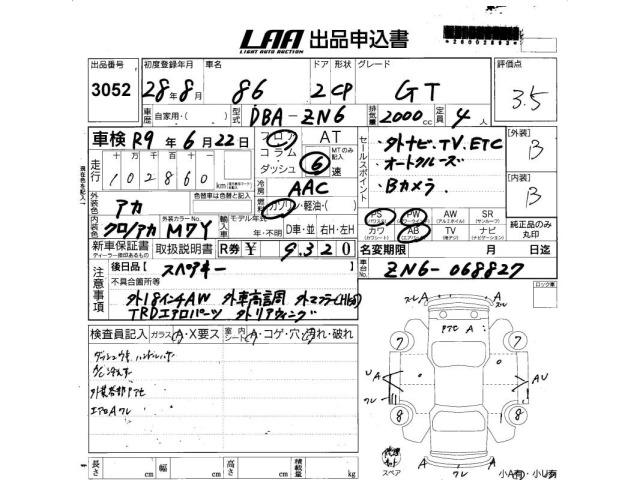 LAA 出品申込書
LIGHT AUTO AUCTION
出品番号 3052
初度登録年月 車名 ドア 形状 グレード 評価点
28年8月 86 2 CP GT 3.5
車歴 自家用・( ) 型式 DBA-ZN6 排気量 2000cc 定員 4人
車検 R9年6月22日
フロア コラム ダッシュ AT MTのみ記入 6 速
セールスポイント
・外ナビ.TV.ETC
・オートクルーズ
・Bカメラ.
【外装】 B
【内装】 B
走行 十万 万 千 百 十 一
102860 km
冷房 AAC
燃料 ガソリン・軽油・( )
現在色を記入
色替車は色替と記入
外装色 アカ
内装色 クロ/アカ
外装カラーNo. M7Y
輸入車 モデル年式 年・不明 D車・並 右H・左H
PS (パワステ) PW (パワーウインド) AW (アルミホイル) SR (サンルーフ)
カワ (カワシート) AB (エアバック) TV (電装ジ) ナビ (ナビゲーション)
純正品のみ丸印
新車保証書 ディーラー捺印あるもの 取扱説明書 R券 ¥ 9,320
名変期限 月 日迄
車台No. ZN6-068827
注意事項
後日品【 スペアキー 】
不具合箇所等
外18インチAW 外車高調 外マフラー(HKS)
TRDエアロパーツ 外リアウィング
ロック車
検査員記入 ガラス(A・X要ス 室内シート(A・コゲ・穴・汚れ・破れ
外装各部アセ
エアロAワレ
長さ cm 幅 cm 高さ cm 積載量 kg
A A
アセ A
7 7
UA A AU
ワレ
8 8
A ワレ A
スペア
小A有・小U有